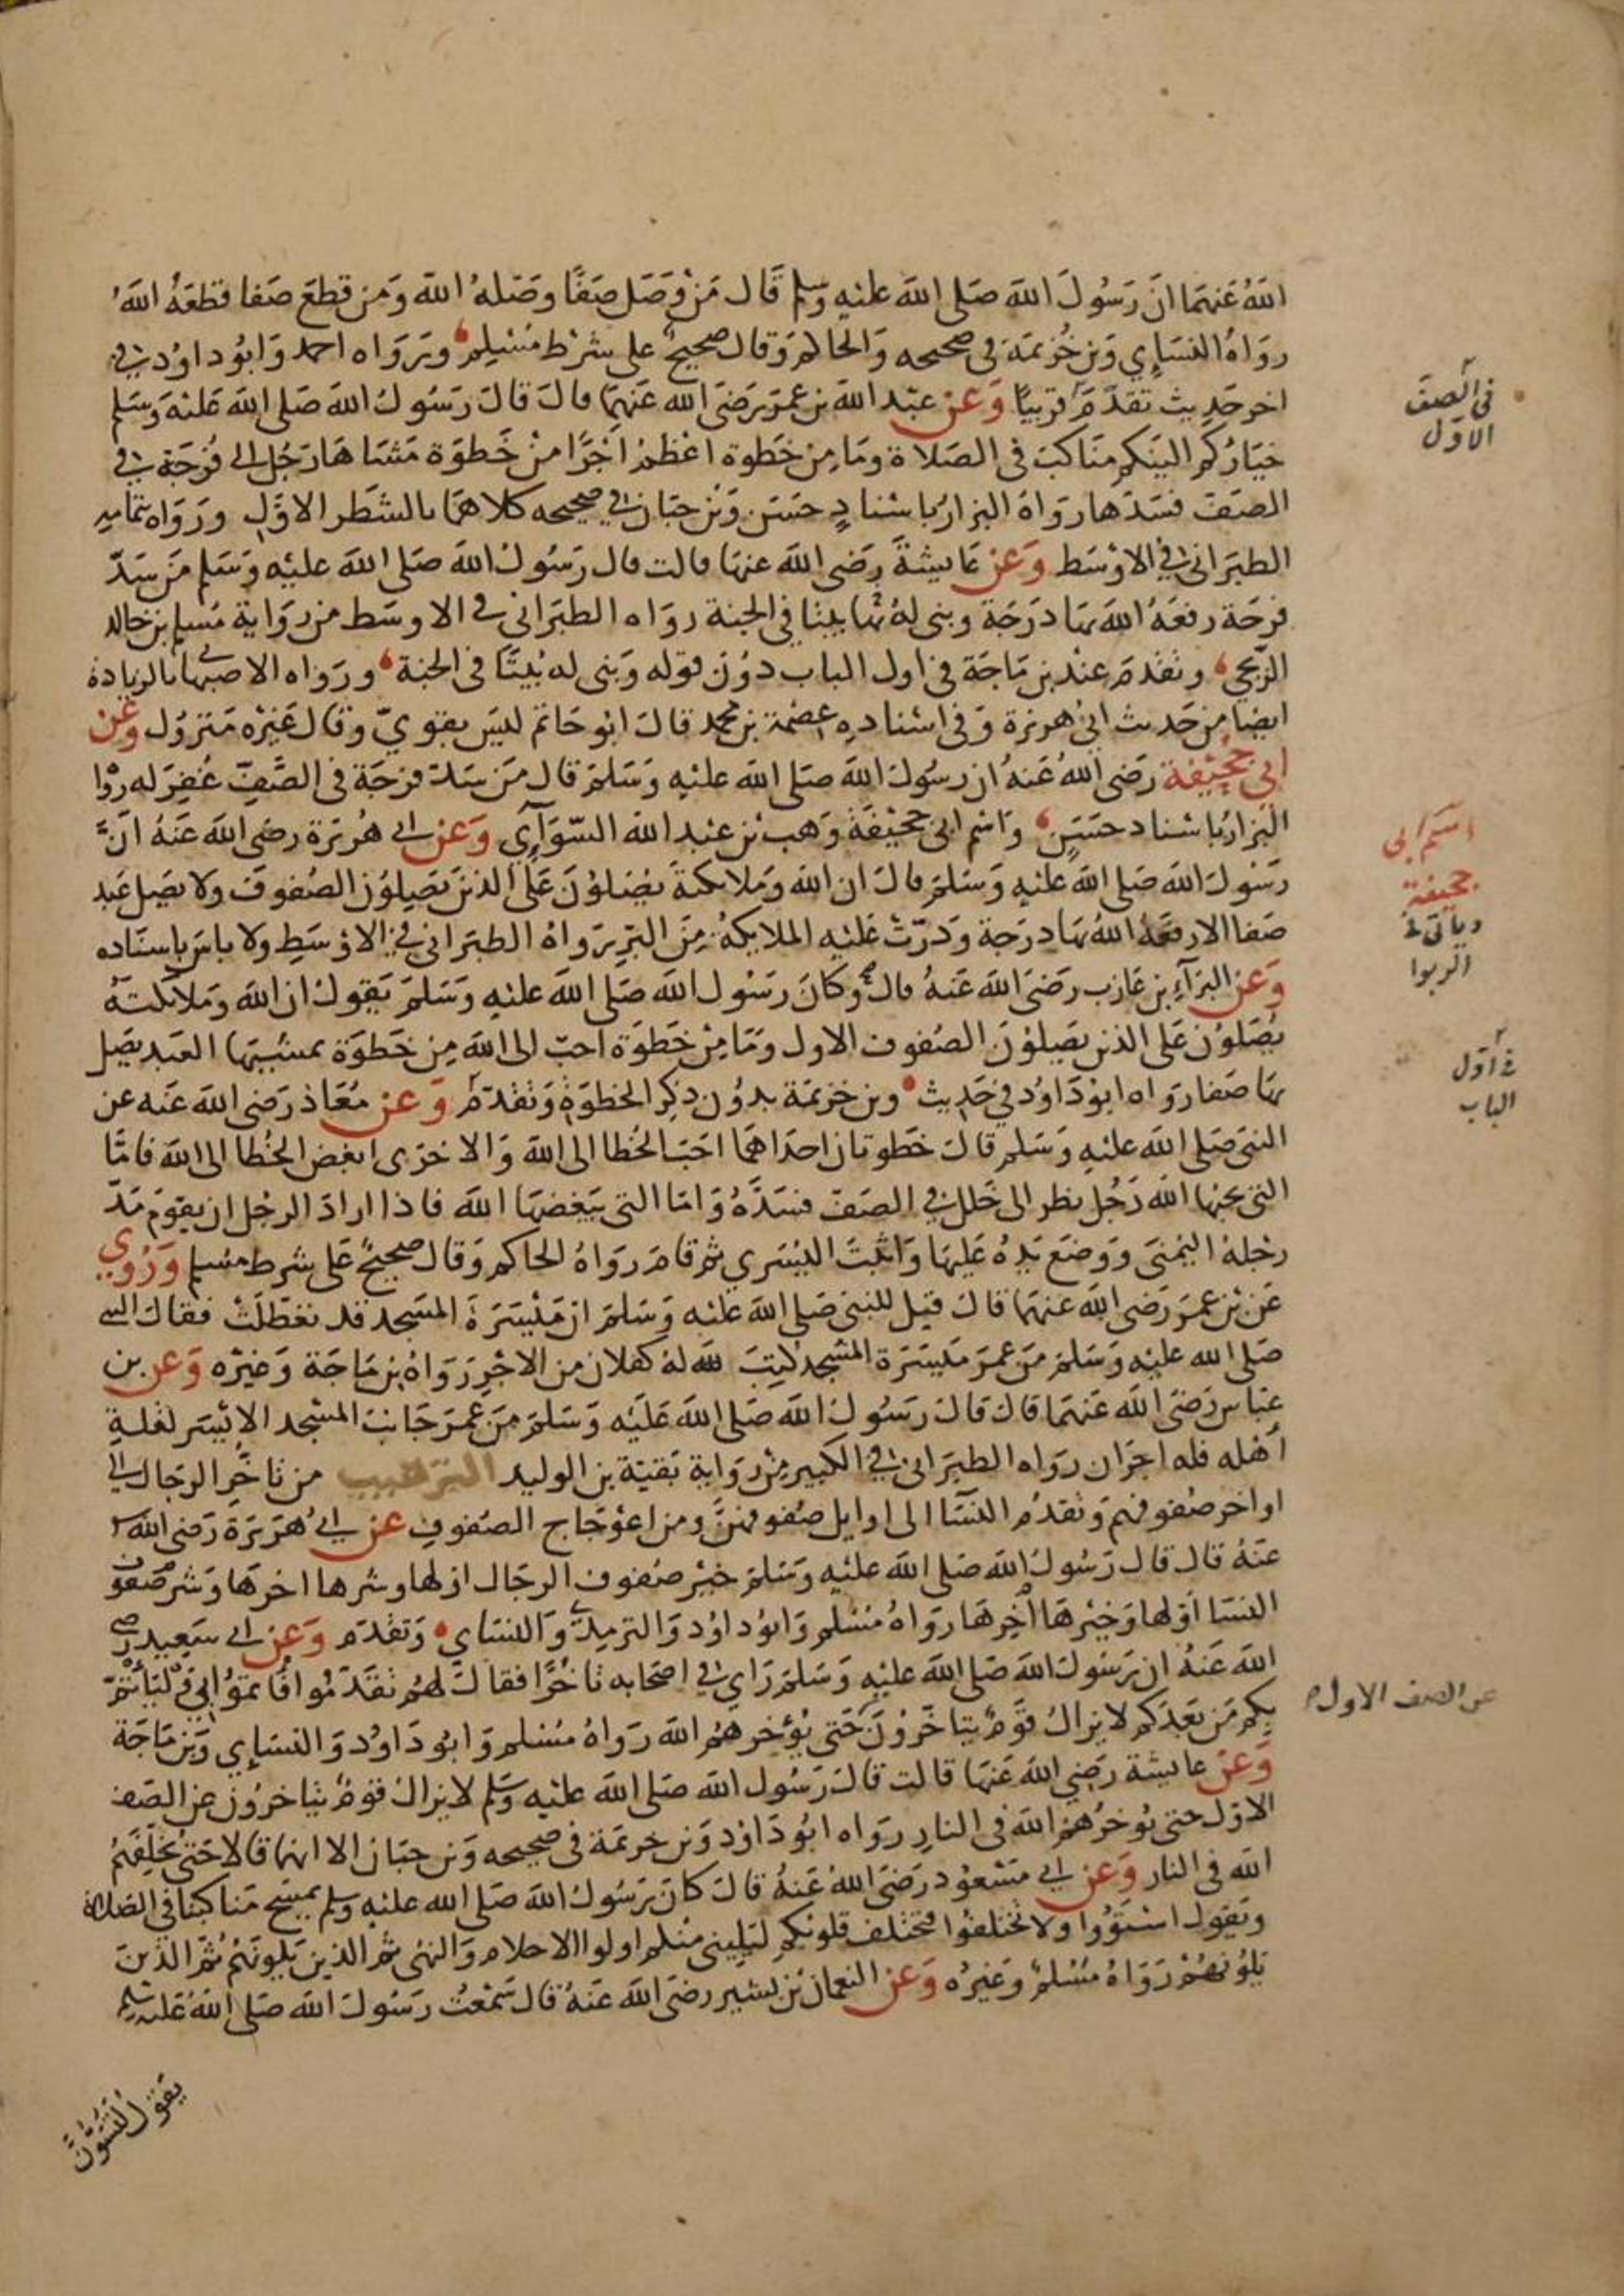 الله عنهما ان رسول الله صلى الله عليه وسلم قال من وصل صفا وصله الله ومن قطع صفا قطعه الله
رواه النسايي وبن خزيمة في صحيحه والحاكم وقال صحيح على شرط مسلم ورواه احمد وابو داود في
اخر حديث تقدم قريبا وعن عبد الله بن عمر رضى الله عنهما قال قال رسول الله صلى الله عليه وسلم
خياركم الينكم مناكب في الصلاة وما من خطوة اعظم اجرا من خطوة مشاها رجل الى فرجة في
الصف فسدها رواه البزار باسناد حسن وبن حبان في صحيحه كلاهما بالشطر الاول ورواه بتمامه
الطبراني في الاوسط وعن عايشة رضى الله عنها قالت قال رسول الله صلى الله عليه وسلم من سد
فرجة رفعه الله بها درجة وبنى له بها بيتا في الجنة رواه الطبراني في الاوسط من رواية مسلم بن خالد
الزنجي وتقدم عند بن ماجة في اول الباب دون قوله وبنى له بيتا في الجنة ورواه الاصبهاني بالزيادة
ايضا من حديث ابي هريرة وفي اسناده عصمة بن محمد قال ابو حاتم ليس بقوي وقال غيره متروك وعن
ابي جحيفة رضى الله عنه ان رسول الله صلى الله عليه وسلم قال من سد فرجة في الصف غفر له رواه
البزار باسناد حسن واسم ابي جحيفة وهب بن عبد الله السوآي وعن ابي هريرة رضى الله عنه ان
رسول الله صلى الله عليه وسلم قال ان الله وملايكته يصلون على الذين يصلون الصفوف ولا يصل عبد
صفا الا رفعه الله بها درجة ودرت عليه الملايكة من البر رواه الطبراني في الاوسط ولا باس باسناده
وعن البرآء بن عازب رضى الله عنه قال وكان رسول الله صلى الله عليه وسلم يقول ان الله وملايكته
يصلون على الذين يصلون الصفوف الاول وما من خطوة احب الى الله من خطوة يمشيها العبد يصل
بها صفا رواه ابو داود في حديث وبن خزيمة بدون ذكر الخطوة وتقدم وعن معاذ رضى الله عنه عن
النبى صلى الله عليه وسلم قال خطوتان احداهما احب الخطا الى الله والاخرى ابغض الخطا الى الله فاما
التى يحبها الله رجل نظر الى خلل في الصف فسده واما التى يبغضها الله فاذا اراد الرجل ان يقوم مد
رجله اليمنى ووضع يده عليها واثبت اليسري ثم قام رواه الحاكم وقال صحيح على شرط مسلم وروي
عن بن عمر رضى الله عنهما قال قيل للنبى صلى الله عليه وسلم ان ميسرة المسجد قد تعطلت فقال النبى
صلى الله عليه وسلم من عمر ميسرة المسجد كتب الله له كفلان من الاجر رواه بن ماجة وغيره وعن بن
عباس رضى الله عنهما قال قال رسول الله صلى الله عليه وسلم من عمر جانب المسجد الايسر لقلة
اهله فله اجران رواه الطبراني في الكبير من رواية بقية بن الوليد الترهيب من تاخر الرجال الى
اواخر صفوفهم وتقدم النسآ الى اوايل صفوفهن ومن اعوجاج الصفوف عن ابي هريرة رضى الله
عنه قال قال رسول الله صلى الله عليه وسلم خير صفوف الرجال اولها وشرها اخرها وشر صفوف
النسا اولها وخيرها آخرها رواه مسلم وابو داود والترمذي والنساي وتقدم وعن ابي سعيد رضى
الله عنه ان رسول الله صلى الله عليه وسلم راي في اصحابه تاخرا فقال لهم تقدموا فاتموا بي وليأتم
بكم من بعدكم لا يزال قوم يتاخرون حتى يؤخرهم الله رواه مسلم وابو داود والنسايي وبن ماجة
وعن عايشة رضي الله عنها قالت قال رسول الله صلى الله عليه وسلم لا يزال قوم يتاخرون عن الصف
الاول حتى يوخرهم الله في النار رواه ابو داود وبن خزيمة في صحيحه وبن حبان الا انهما قالا حتى يخلفهم
الله في النار وعن ابي مسعود رضى الله عنه قال كان رسول الله صلى الله عليه وسلم يمسح مناكبنا في الصلاة
ويقول استووا ولا تختلفوا فتختلف قلوبكم ليلينى منكم اولوا الاحلام والنهى ثم الذين يلونهم ثم الذين
يلونهم رواه مسلم وغيره وعن النعمان بن بشير رضى الله عنه قال سمعت رسول الله صلى الله عليه وسلم
يقول لتسون
في الصف
الاول
اسم ابي
جحيفة
وياتى في
الربوا
في اول
الباب
عن الصف الاول